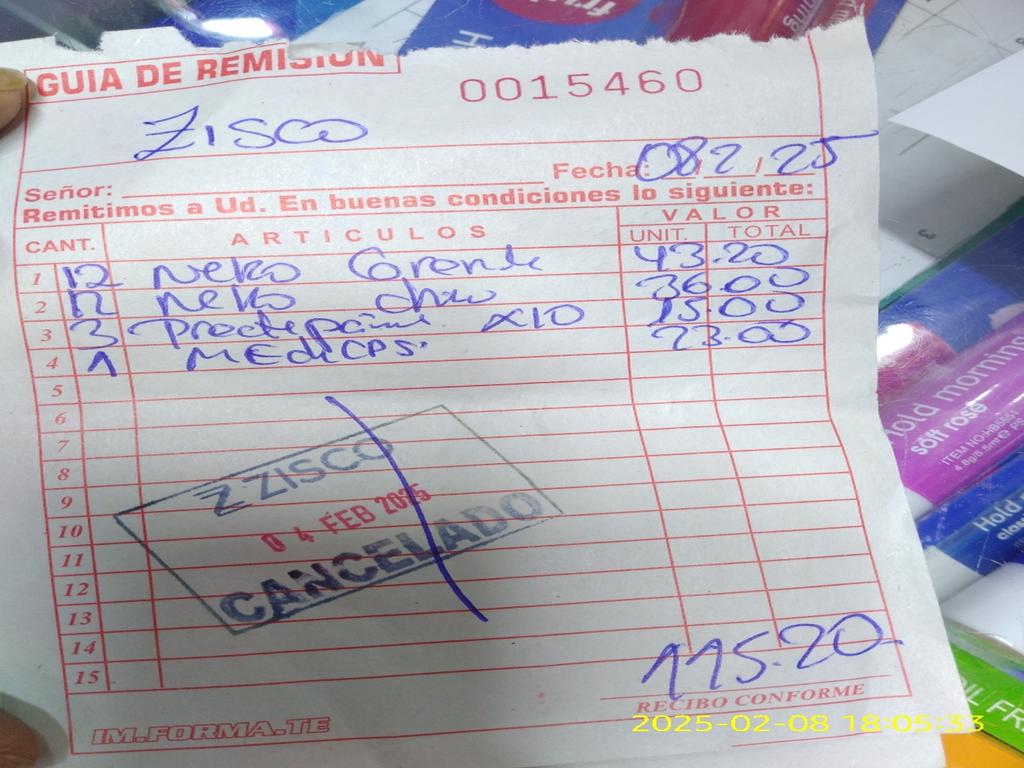 GUIA DE REMISION
0015460
ZISCO
Fecha: 08 2 / 25
Señor:
Remitimos a Ud. En buenas condiciones lo siguiente:
CANT. ARTICULOS VALOR
UNIT. TOTAL
1 12 Neko Grande 43.20
2 12 Neko 36.00
3 3 x10 15.00
4 1 23.00
5
6
7
8
9
10
11
12
13
14
15
ZZISCO
04 FEB 2025
CANCELADO
115.20
RECIBO CONFORME
IM.FORMA.TE
2025-02-08 18:05:33
hold morning
soft rose
ITEM NO:HB5551
Hold